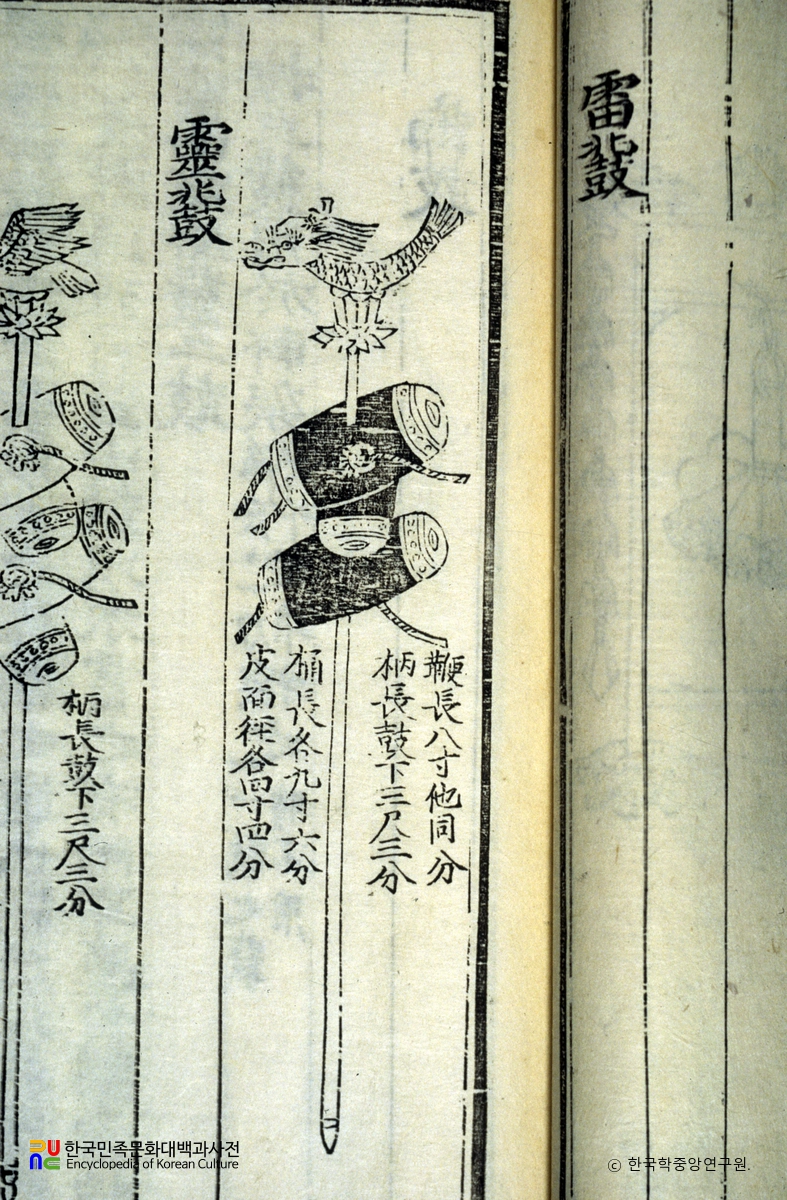 雷鼗
鞭長八寸他同分
柄長鼓下三尺三分
桶長各九寸六分
皮面徑各四寸四分
靈鼗
柄長鼓下三尺三分
한국민족문화대백과사전
Encyclopedia of Korean Culture
ⓒ 한국학중앙연구원.